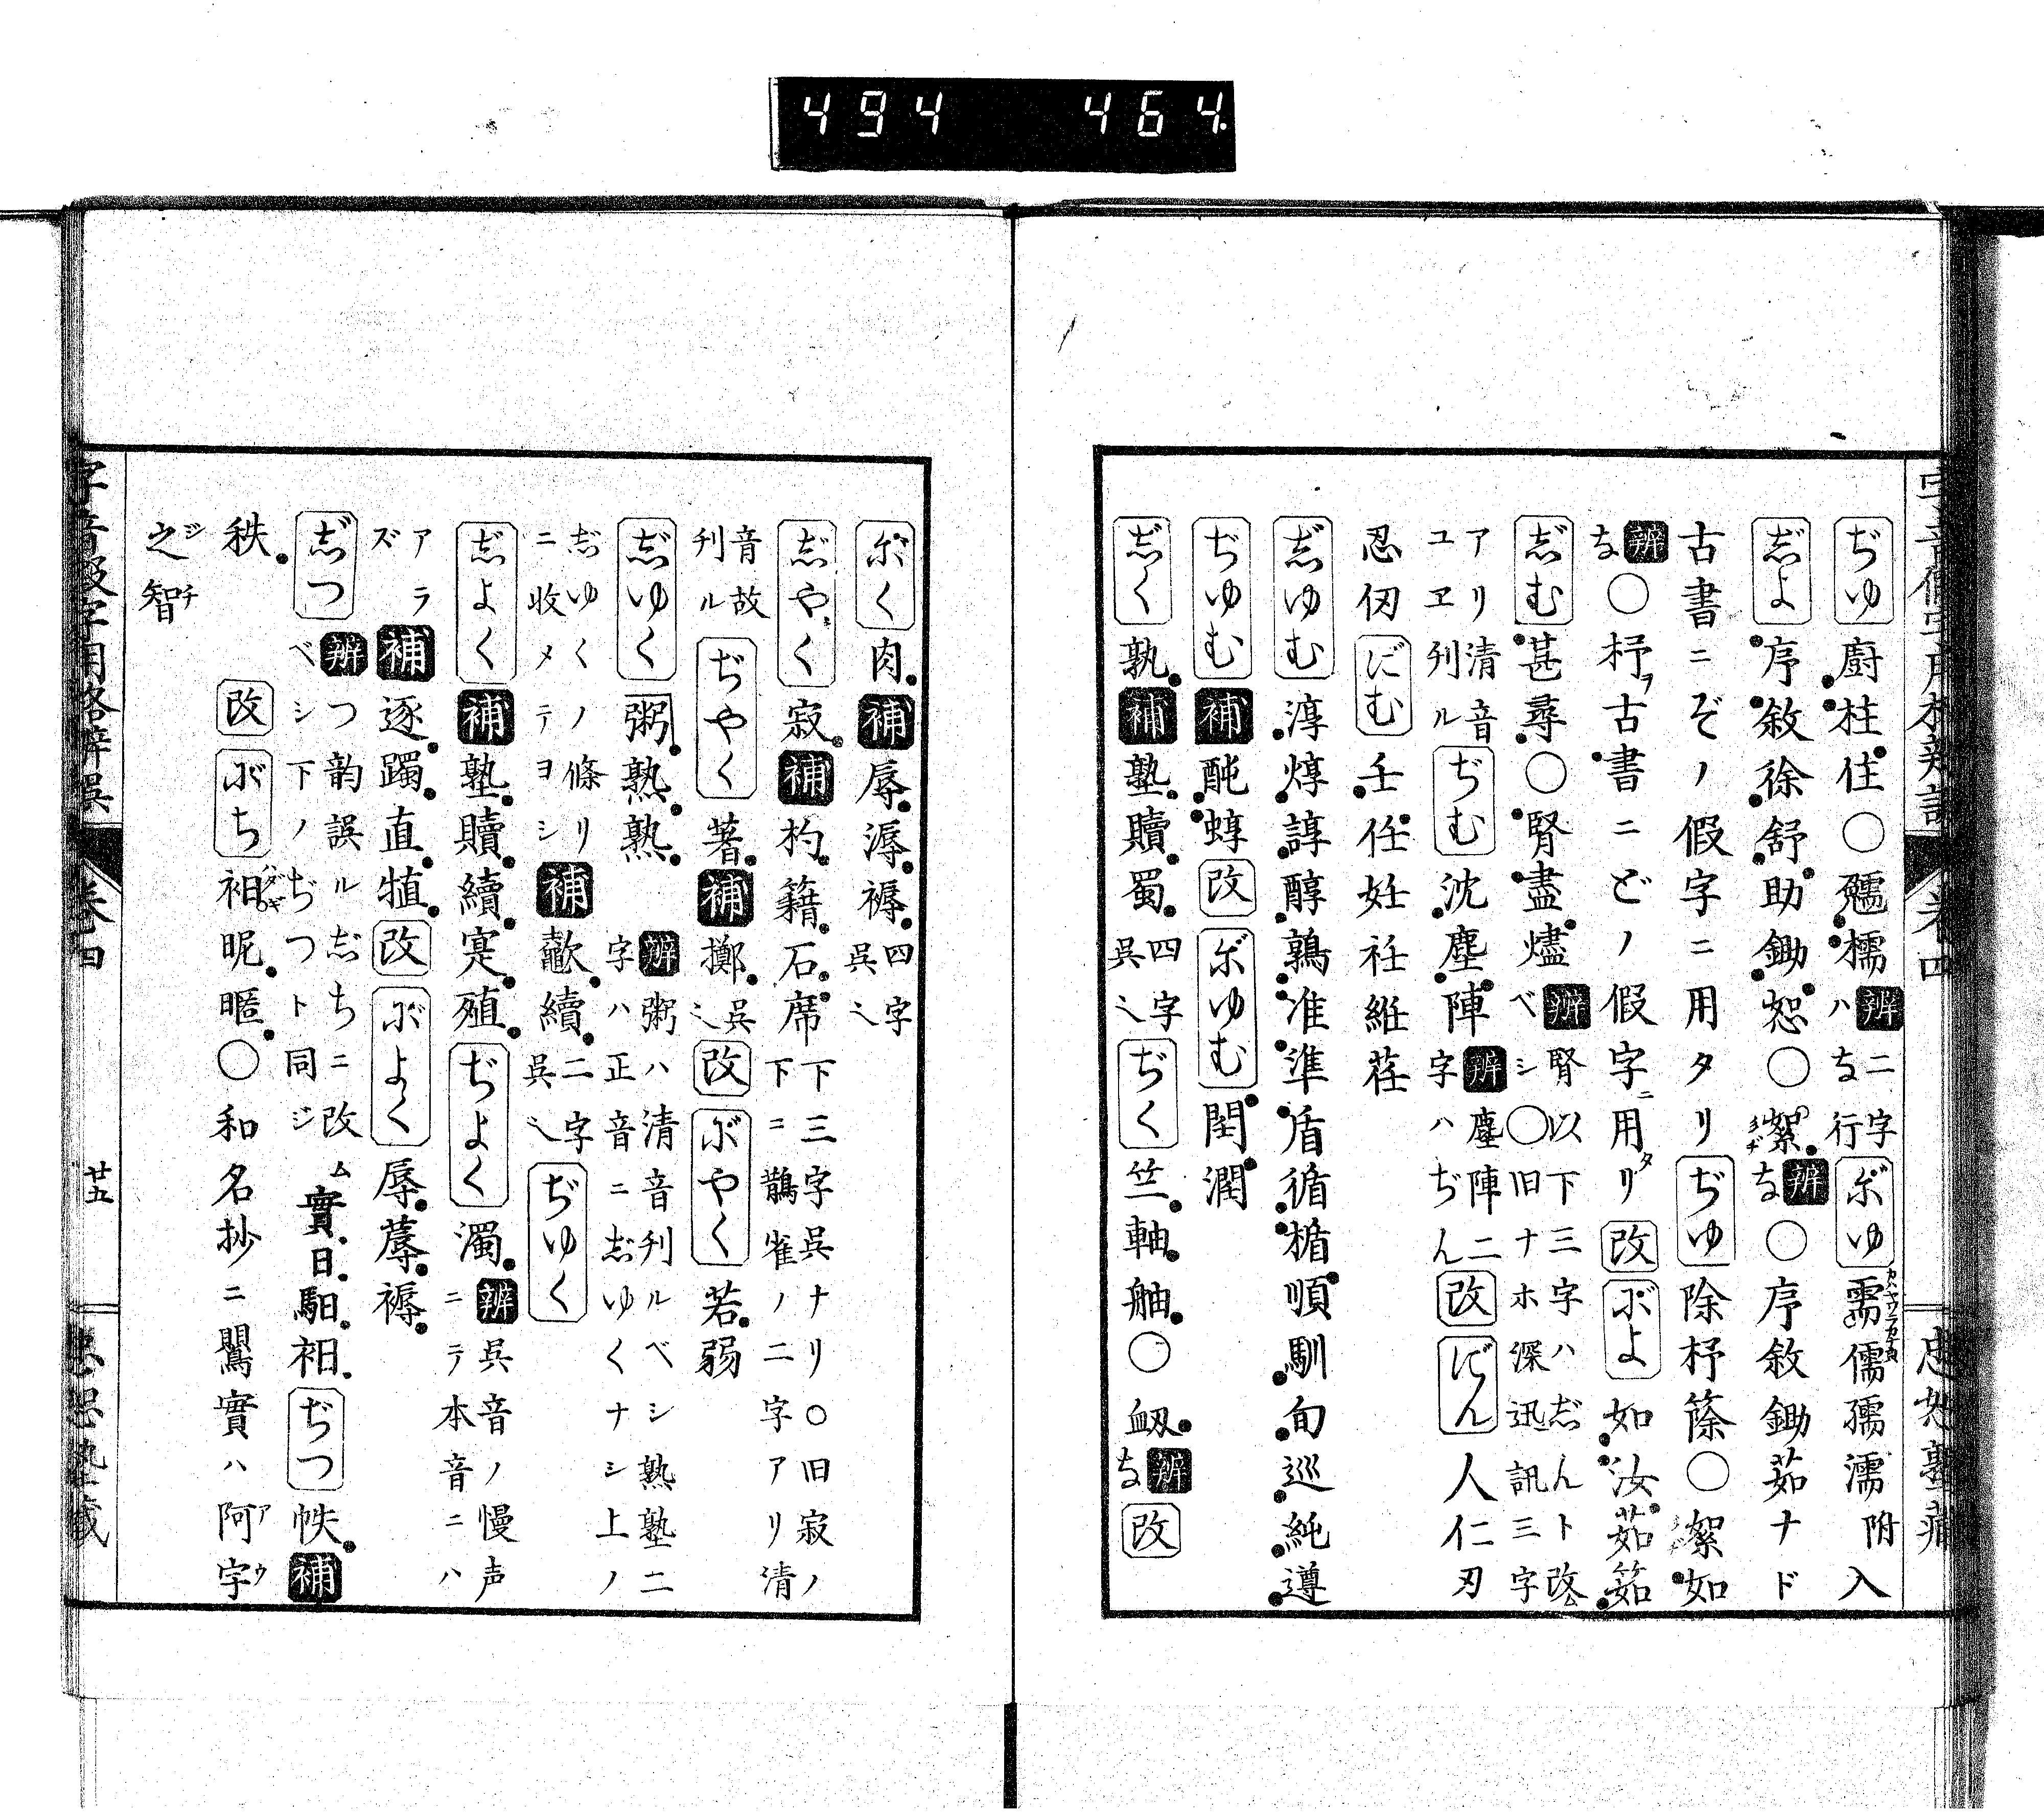 494 464
ぢゆ 廚柱住〇𩰆檽 辨二字ハな行 ぶゆ 需儒孺濡附入
じよ 序敘徐舒助鋤恕〇絮 辨な〇序敘鋤茹ナド
古書ニぞノ假字ニ用タリ ぢゆ 除杼篨〇絮如
辨な〇杼ヲ古書ニどノ假字ニ用タリ 改 ぶよ 如汝茹筎
じむ 甚尋〇腎盡燼 辨腎以下三字ハじんト改ムベシ〇旧ナホ深迅訊三字
アリ清音ユヱ刋ル ぢむ 沈塵陣 辨塵陣二字ハぢん 改 ん 人仁刃
忍仞 む 壬任妊衽絍荏
じゆむ 淳焞諄醇鶉准準盾循楯順馴旬巡純遵
ぢゆむ 補 蓴 改 ゆむ 閏潤
じく 孰 補 塾贖蜀 四字呉〻 ぢく 竺軸舳〇衂 辨な 改
く 肉 補 辱溽褥 四字呉〻
じやく 寂 補 杓籍石席 下三字呉ナリ〇旧寂ノ下ニ鵲雀ノ二字アリ清
音故刋ル ぢやく 著 補 擲 呉〻 改 やく 若弱
じゆく 粥熟熟 辨粥ハ清音刋ルベシ熟塾二字ハ正音ニじゆくナシ上ノ
じゆくノ條リニ收メテヨシ 補 歜續 二字呉〻 ぢゆく
じよく 補 塾贖續寔殖 ぢよく 濁 辨呉音ノ慢声ニテ本音ニハ
アラズ 補 逐躅直犆 改 よく 辱蓐褥
じつ 辨つ韵誤ルじちニ改ムベシ下ノぢつト同ジ 實日馹衵 ぢつ 帙 補
秩 改 ち 衵昵暱〇和名抄ニ鷪實ハ阿字
之智
卷四
廿五
忠恕塾藏